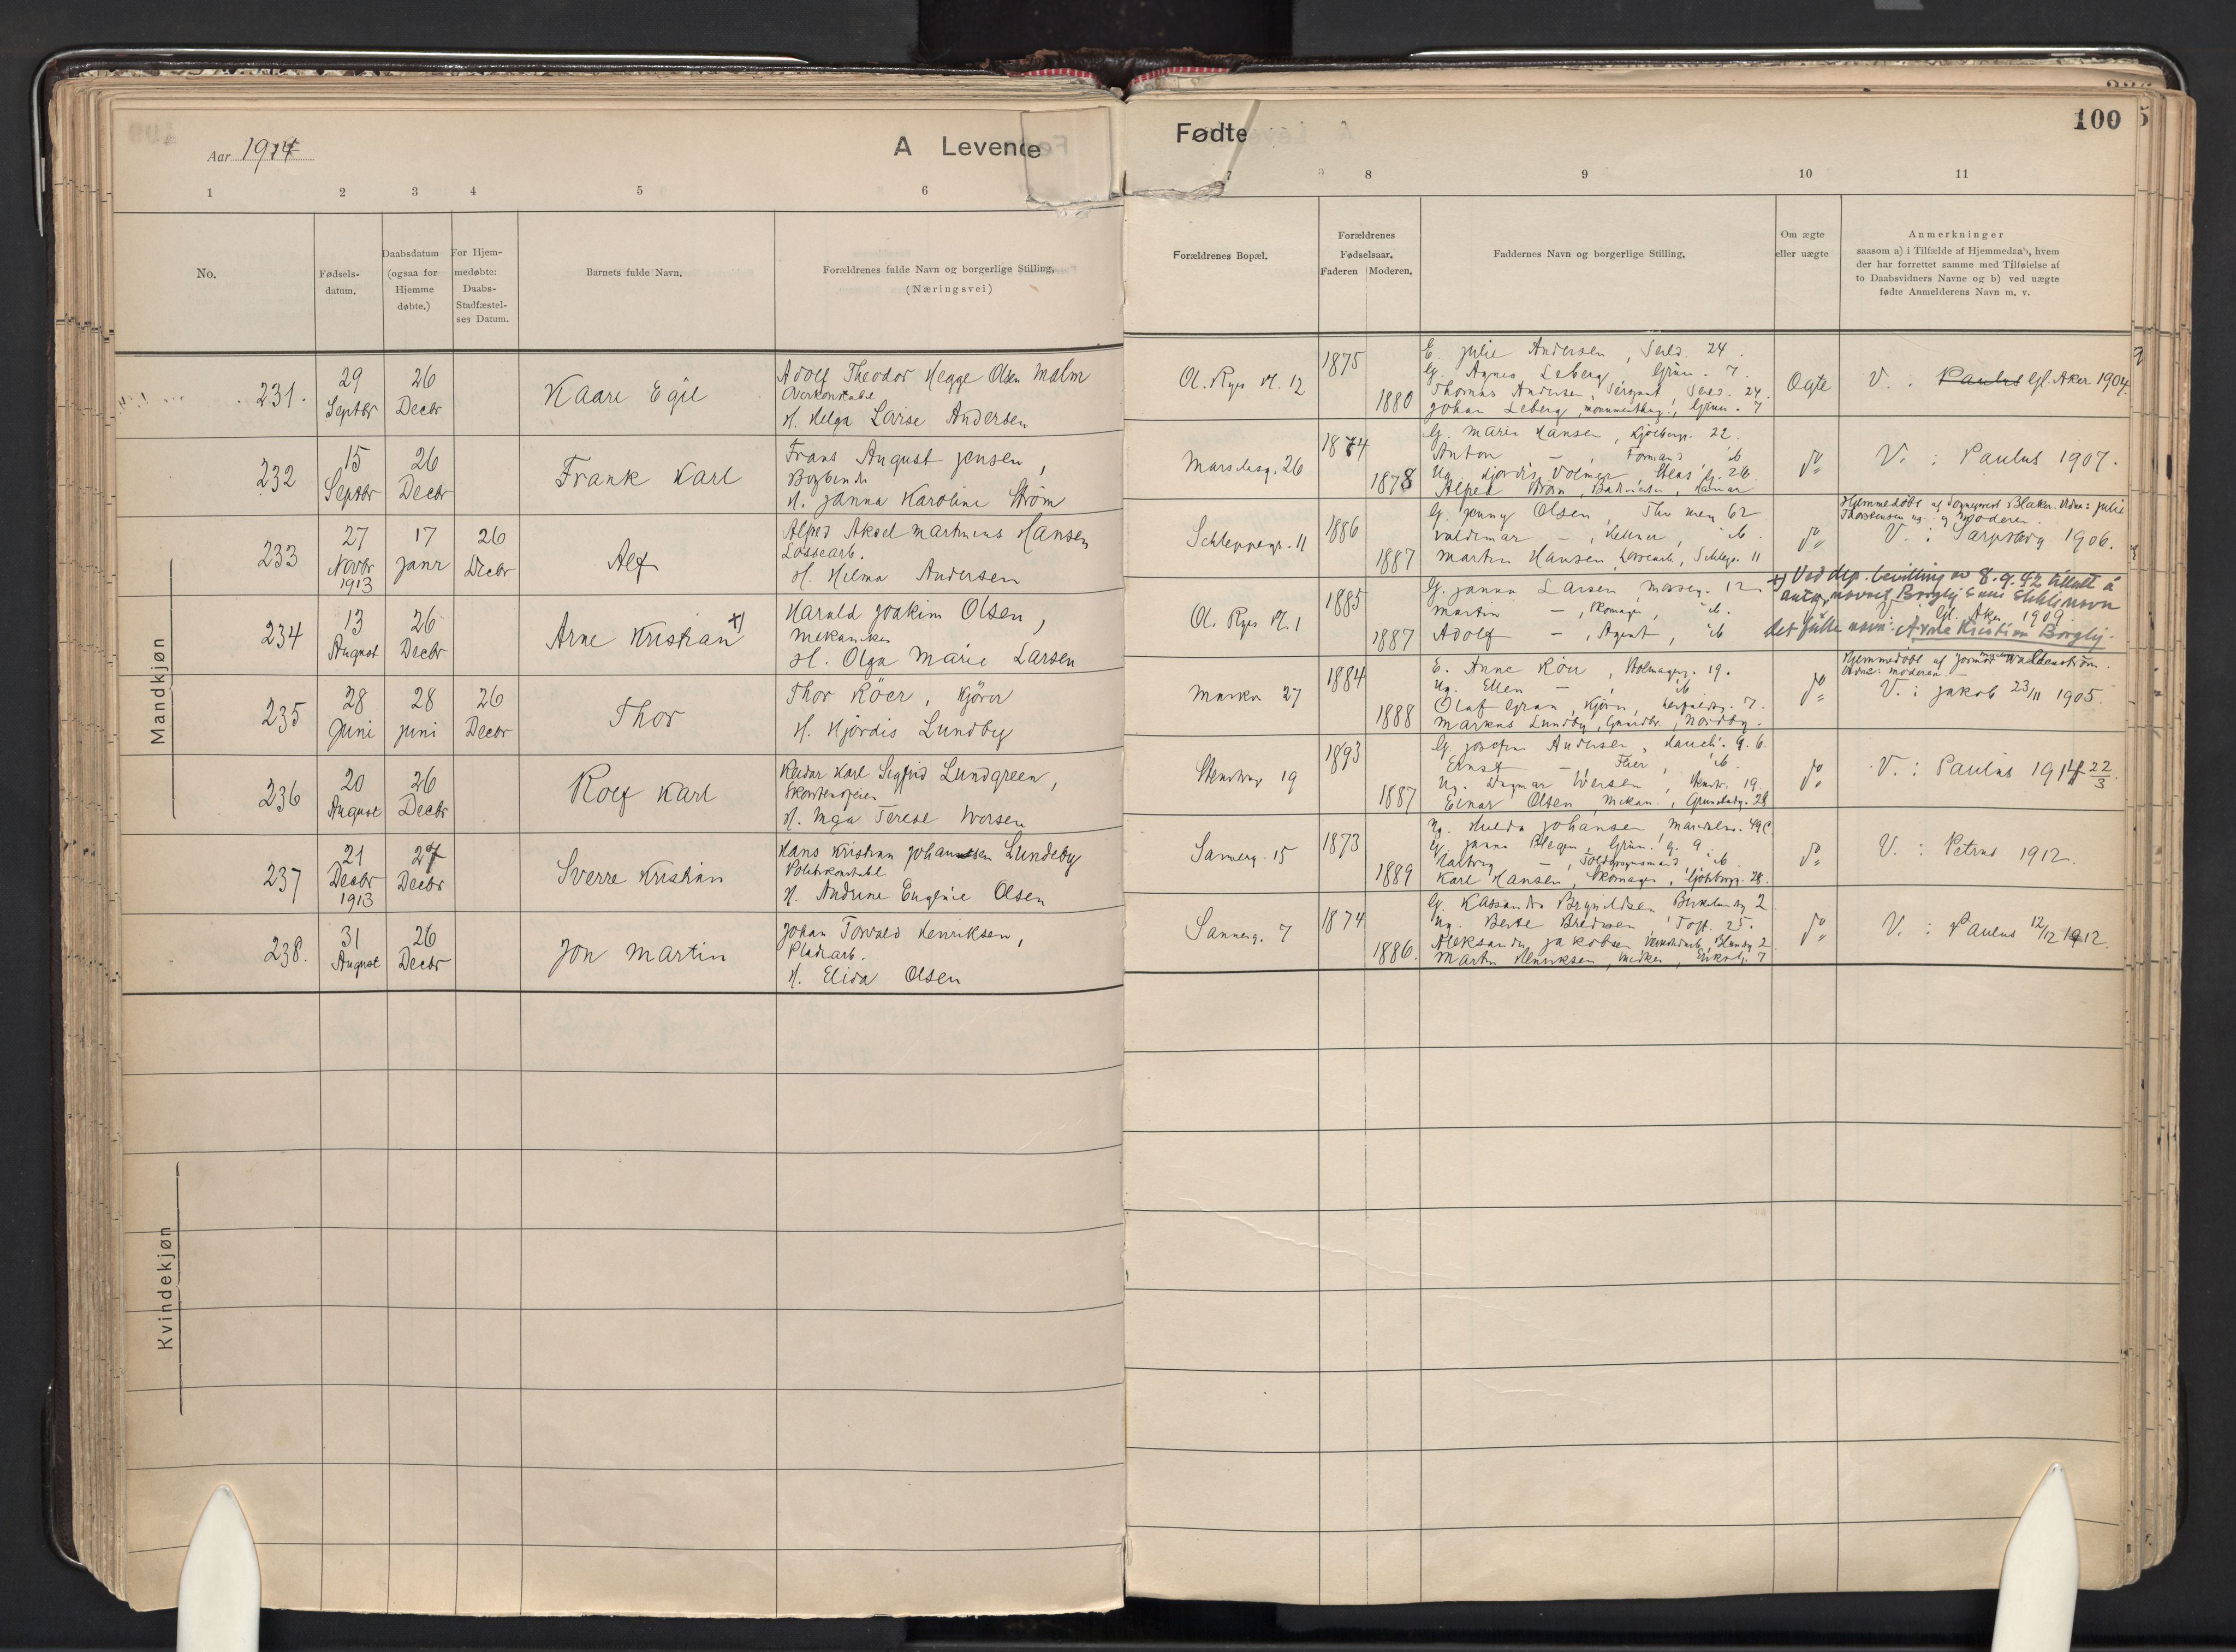 100
Aar 1914
A Levende
Fødte
1 2 3 4 5 6
7 8 9 10 11
No.
Fødsels-
datum.
Daabsdatum
(ogsaa for
Hjemme
døbte.)
For Hjem-
medøbte:
Daabs-
Stadfæstel-
ses Datum.
Barnets fulde Navn.
Forældrenes fulde Navn og borgerlige Stilling,
(Næringsvei)
Forældrenes Bopæl.
Forældrenes
Fødselsaar.
Faderen Moderen.
Faddernes Navn og borgerlige Stilling.
Om ægte
eller uægte
Anmerkninger
saasom a) i Tilfælde af Hjemmedaab, hvem
der har forrettet samme med Tilføielse af
to Daabsvidners Navne og b) ved uægte
fødte Anmelderens Navn m. v.
Mandkjøn
231.
29
Septbr
26
Decbr
Kaare Egil
Adolf Theodor Hegge Olsen Malm
Overkonstabel
H. Helga Lovise Andersen
Ol. Ryes Pl. 12
1875
1880
E. Julie Andersen, 24.
G. Agnes Leberg, Grün. 7.
Thomas Andersen, Sergeant, 24.
Johan Leberg, Grün. 7
Ægte
V. : Paulus Gl. Aker 1904.
232
15
Septbr
26
Decbr
Frank Karl
Frans August Jensen,
Bogbinder
H. Janna Karoline Strøm
Marselisg. 26
1874
1878
G. Marie Hansen, 22.
Anton — , Formand, ib
Ug. Hjørdis Volmer 26.
Alfred Strøm, Hamar
do
V. : Paulus 1907.
233
27
Novbr
1913
17
Janr
26
Decbr
Alf
Alfred Aksel Martinius Hansen
Lossearb.
H. Hilma Andersen
Schleppegr. 11
1886
1887
G. Jenny Olsen, Thv. Mey. 62
Valdemar — , Kellner, ib.
Martin Hansen, Lossearb., Schlepp. 11
do
Hjemmedøbt af Blaker. Vidne: Julie
Thorstensen og Moderen.
V. : Sarpsborg 1906.
234
13
August
26
Decbr
Arne Kristian x)
Harald Joakim Olsen,
Mekaniker
H. Olga Marie Larsen
Ol. Ryes Pl. 1
1885
1887
G. Janna Larsen, 12
Martin — , Skomager, ib.
Adolf — , Agent, ib
x) Ved dep. bevilling av 8.9.42 tillatt å
anta navnet Borgly som slektsnavn
Gl. Aker 1909.
det fulle navn: Arne Kristian Borgly.
235
28
Juni
28
Juni
26
Decbr
Thor
Thor Röer, Kjører
H. Hjördis Lundby
Markv 27
1884
1888
E. Anne Röer, 19.
Ug. Ellen — , ib
Olaf Gran, Kjører, 7.
Markus Lundby, Gaardbr., Nordby.
do
Hjemmedøbt af Jormor Waldenström.
Vidne: Moderen
V. : Jakob 23/11 1905.
236
20
August
26
Decbr
Rolf Karl
Reidar Karl Sigfrid Lundgreen,
Skorstensfeier
H. Inga Terese Iversen
Stenstrup 19
1893
1887
G. Josefine Andersen, 6.
Ernst — , ib.
Ug. Dagmar Iversen, 19.
Einar Olsen, Mekan., 28
do
V. : Paulus 1914 22/3.
237
21
Decbr
1913
27
Decbr
Sverre Kristian
Hans Kristian Johannessen Lundeby
Politikonstabel
H. Andrine Eugenie Olsen
Sannerg. 15
1873
1889
Ug. Hulda Johansen, 49c.
G. Janna, Grün. g. 9
— , ib
Karl Hansen, Skomager, 28.
do
V. : Petrus 1912.
238.
31
August
26
Decbr
Jon Martin
Johan Torvald Henriksen,
Pladsarb.
H. Elida Olsen
Sannerg. 7
1874
1886.
G. Kassandra Brynildsen 2
Ug. Berte Bredesen, Toft. 25.
Aleksander Jakobsen, 2
Martin Henriksen, 7
do
V. : Paulus 12/12 1912.
Kvindekjøn